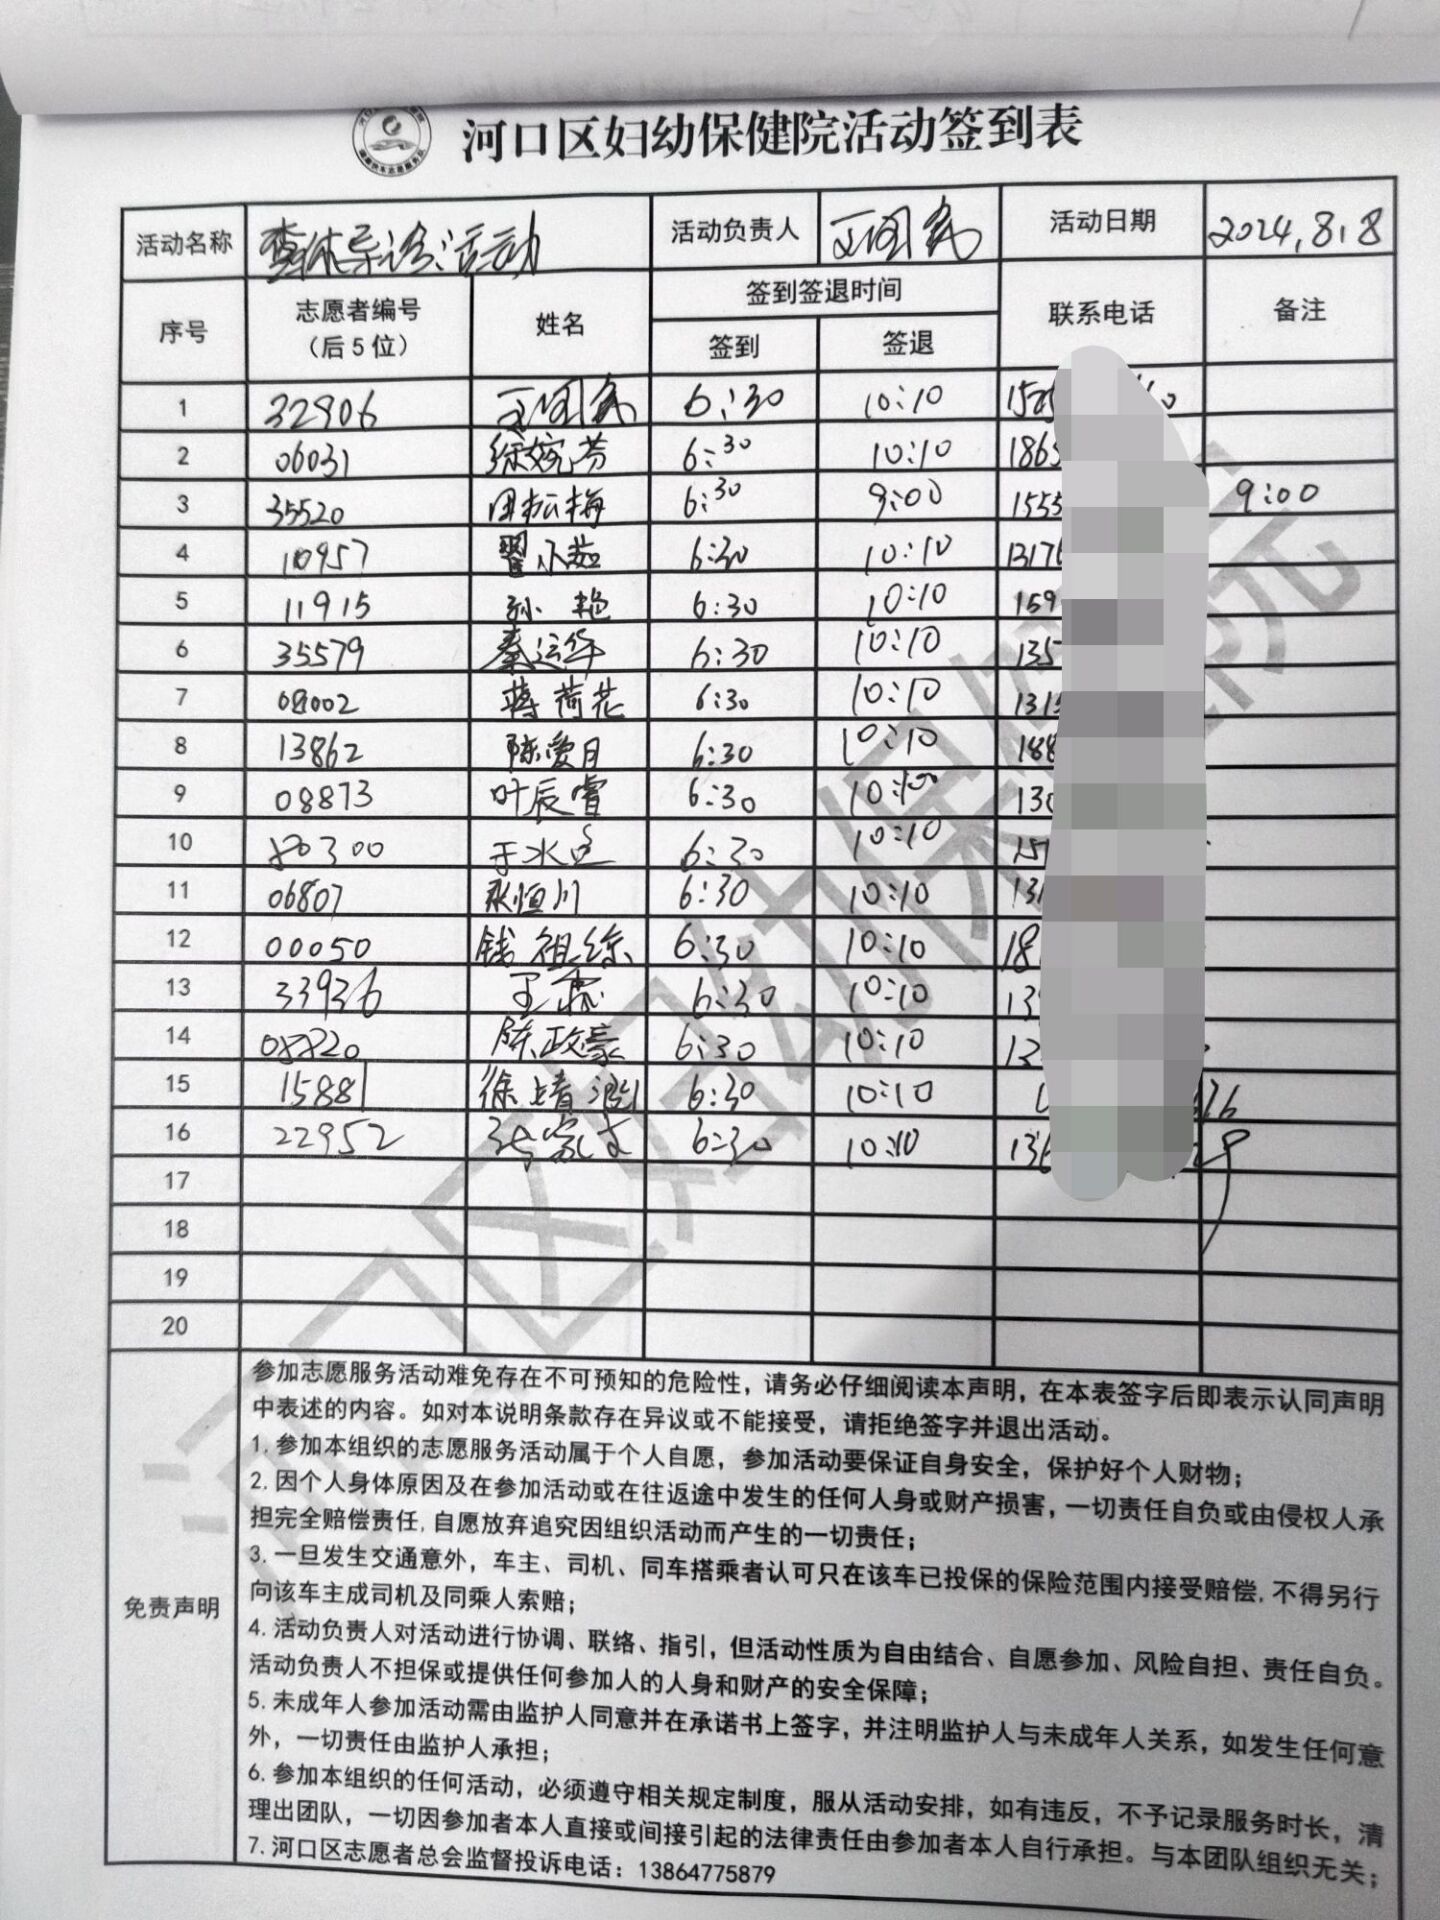 河口区妇幼保健院活动签到表
活动名称 查体导诊活动 活动负责人 王国民 活动日期 2024.8.8
序号 志愿者编号（后5位） 姓名 签到签退时间 联系电话 备注
签到 签退
1 32906 王国民 6:30 10:10
2 06031 徐婉芬 6:30 10:10 1863
3 35520 田松梅 6:30 9:00 1555 9:00
4 10957 翟小茹 6:30 10:10 1317
5 11915 孙艳 6:30 10:10 159
6 35579 秦运华 6:30 10:10 135
7 08002 蒋荷花 6:30 10:10 1315
8 13862 陈爱月 6:30 10:10 188
9 08873 叶辰睿 6:30 130
10 80300 6:30 10:10 15
11 06807 张恒川 6:30 10:10 131
12 00050 钱祖综 6:30 10:10 18
13 33936 王霖 6:30 10:10 13
14 08820 陈政豪 6:30 10:10 13
15 15881 6:30 10:10
16 22952 6:30 10:10 136
17
18
19
20
免责声明
参加志愿服务活动难免存在不可预知的危险性，请务必仔细阅读本声明，在本表签字后即表示认同声明
中表述的内容。如对本说明条款存在异议或不能接受，请拒绝签字并退出活动。
1.参加本组织的志愿服务活动属于个人自愿，参加活动要保证自身安全，保护好个人财物；
2.因个人身体原因及在参加活动或在往返途中发生的任何人身或财产损害，一切责任自负或由侵权人承
担完全赔偿责任,自愿放弃追究因组织活动而产生的一切责任；
3.一旦发生交通意外，车主、司机、同车搭乘者认可只在该车已投保的保险范围内接受赔偿,不得另行
向该车主成司机及同乘人索赔；
4.活动负责人对活动进行协调、联络、指引，但活动性质为自由结合、自愿参加、风险自担、责任自负。
活动负责人不担保或提供任何参加人的人身和财产的安全保障；
5.未成年人参加活动需由监护人同意并在承诺书上签字，并注明监护人与未成年人关系，如发生任何意
外，一切责任由监护人承担；
6.参加本组织的任何活动，必须遵守相关规定制度，服从活动安排，如有违反，不予记录服务时长，清
理出团队，一切因参加者本人直接或间接引起的法律责任由参加者本人自行承担。与本团队组织无关；
7.河口区志愿者总会监督投诉电话：13864775879
河口区妇幼保健院